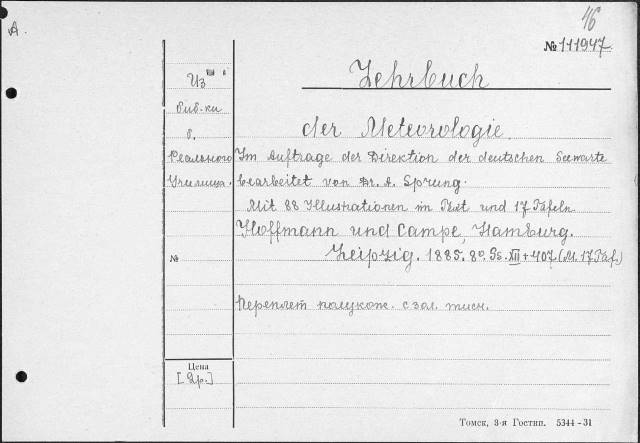 46
A.
№ 111947
Lehrbuch
Из
биб-ки
б.
der Meteorologie.
Реального
Im Auftrage der Direktion der deutschen Seewarte
Училища.
bearbeitet von Dr. A. Sprung.
Mit 88 Illustrationen im Text und 17 Tafeln
Hoffmann und Campe, Hamburg.
№
Leipzig. 1885. 8o. Ss. XII + 407. (M. 17 Taf.)
Переплет полукож. с зол. тисн.
Цена
[2р.]
Томск, 3-я Гостип. 5344-31